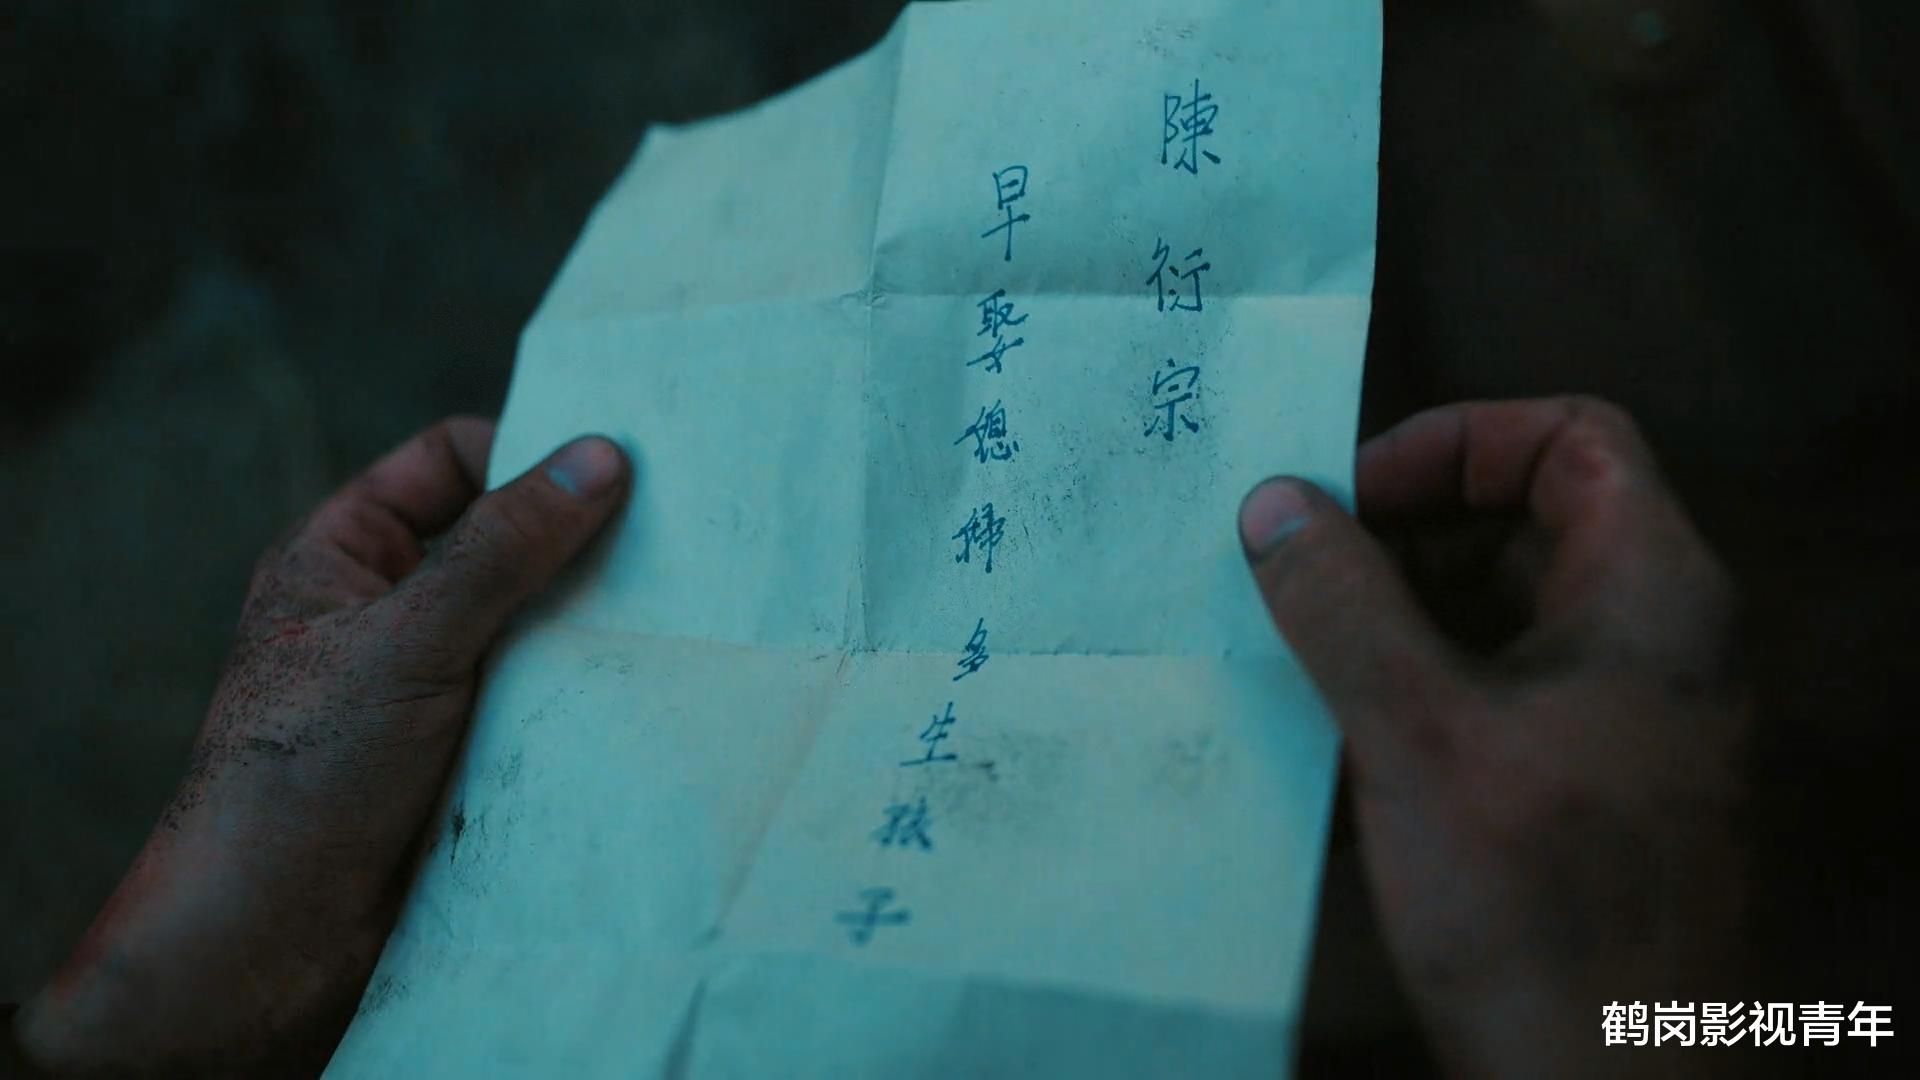 陳衍宗
早娶媳婦多生孩子
鹤岗影视青年